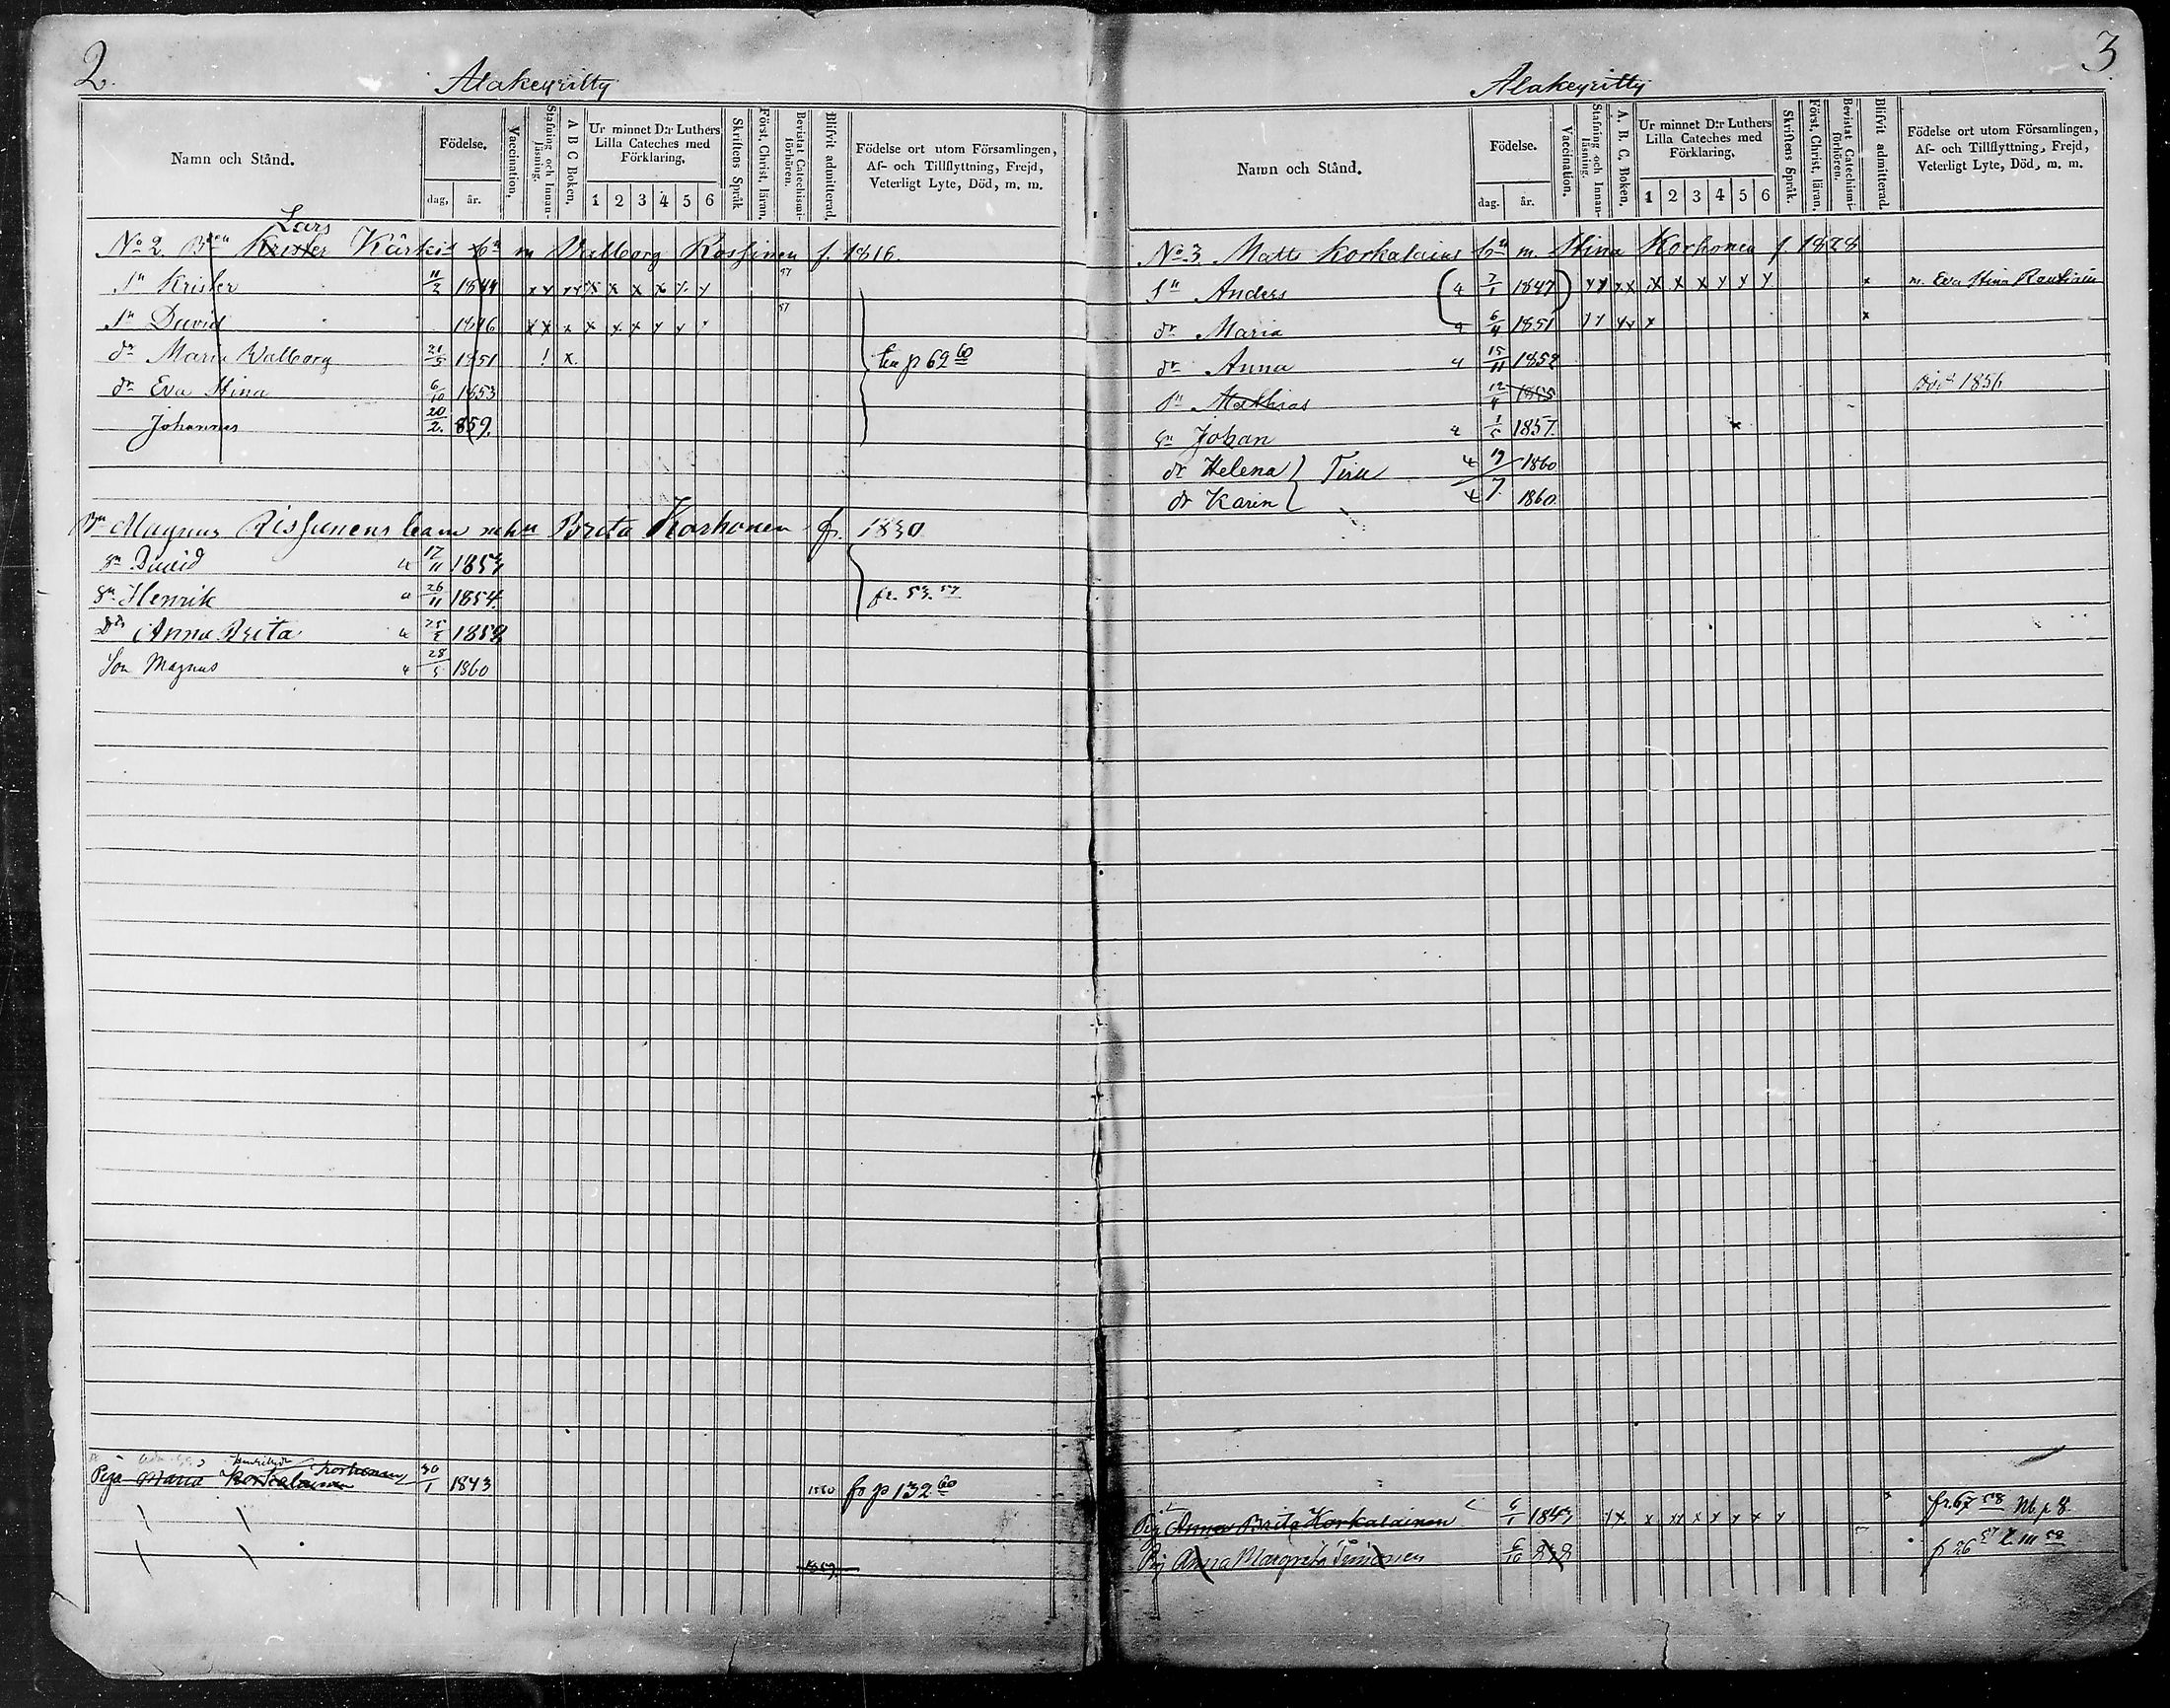 2.
Alakeyritty
Namn och Stånd.
Födelse.
dag, år.
Vaccination,
Stafning och Innan-läsning.
A B C Boken.
Ur minnet D:r Luthers Lilla Cateches med Förklaring.
1 2 3 4 5 6
Skriftens Språk
Först, Christ, läran.
Bevistat Catechismi-förhören.
Blifvit admitterad.
Födelse ort utom Församlingen,
Af- och Tillflyttning, Frejd,
Veterligt Lyte, Död, m. m.
Lars
No 2. Krister Kärki m Valborg f. 1816.
Sn Krister 11/2 1844 x x x x x x x x x x 57
Sn David 1846 x x x x x x x x 57
dr Maria Walborg 21/5 1851 ! x.
p 69 60
dr Eva Stina 6/10 1853
Johannes 20/2. 859.
Bn Magnus Brita Korhonen f. 1830
sn David 17/11 1853
sn Henrik 26/11 1854
fr. 53. 57
Dr Anna Brita 25/5 1858
Son Magnus 28/5 1860
Piga Maria Korkalainen Korhonen 30/1 1843 1860 fr p 132 60
1859
3.
Alakeyritty
Namn och Stånd.
Födelse.
dag. år.
Vaccination.
Stafning och Innan-läsning.
A. B. C. Boken.
Ur minnet D:r Luthers Lilla Cateches med Förklaring.
1 2 3 4 5 6
Skriftens Språk.
Först, Christ, läran.
Bevistat Catechismi-förhören.
Blifvit admitterad.
Födelse ort utom Församlingen,
Af- och Tillflyttning, Frejd,
Veterligt Lyte, Död, m. m.
No 3. Matts Korkalains m. Stina Korhonen f. 1828
Sn Anders 7/1 1847 x x x x x x x x x x x m. Eva Stina Rautiain
dr Maria 6/4 1851 x x x x x x
dr Anna 15/11 1852
Sn Mathias 12/4 1855 1856
sn Johan 1/5 1857. x
dr Helena 19/7 1860
dr Karin 1860.
Anna Brita Korkalainen 6/1 1843 x x x x x x x x x x fr. 67 58 p 8
Anna Margreta 6/10